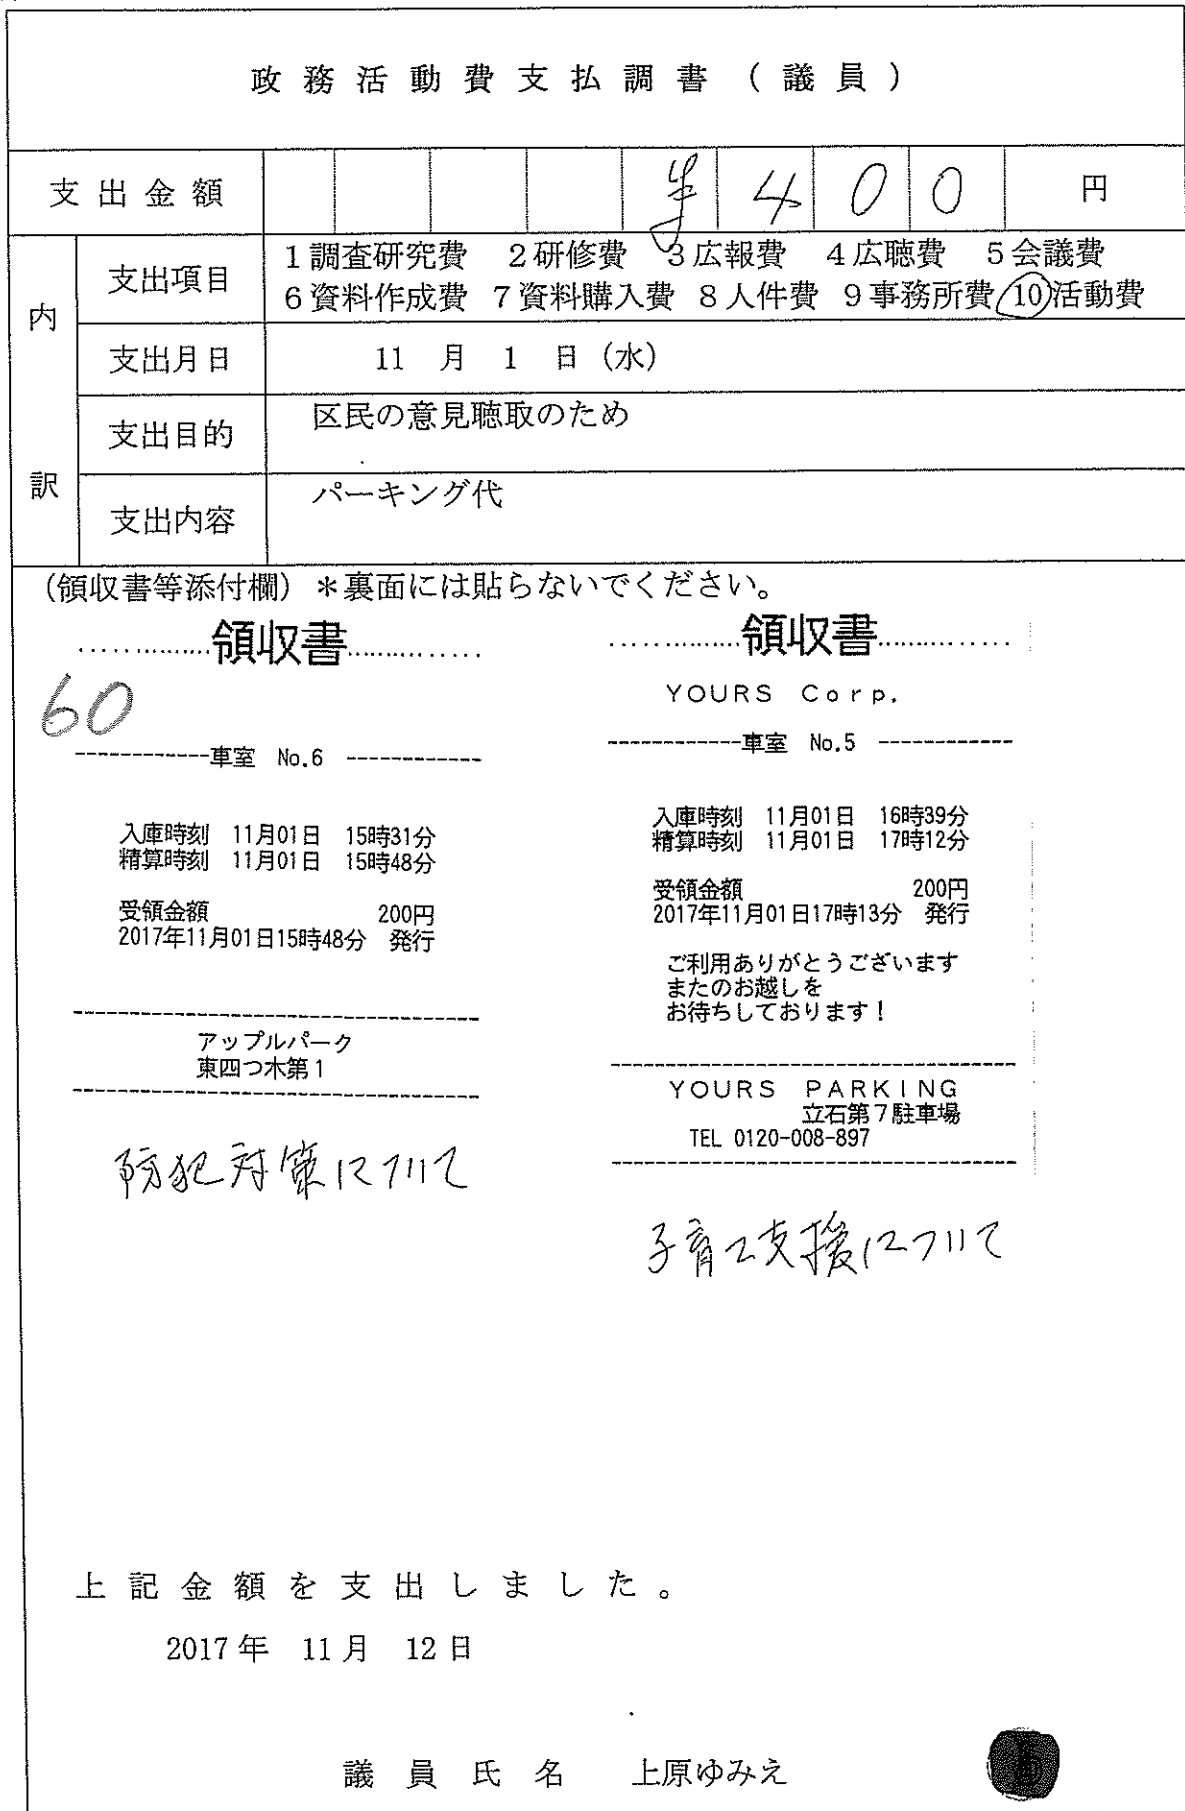 政務活動費支払調書（議員）
支出金額 ¥400 円
内訳
支出項目 1調査研究費 2研修費 3広報費 4広聴費 5会議費
6資料作成費 7資料購入費 8人件費 9事務所費 10活動費
支出月日 11 月 1 日（水）
支出目的 区民の意見聴取のため
支出内容 パーキング代
（領収書等添付欄）＊裏面には貼らないでください。
領収書
60
車室 No.6
入庫時刻 11月01日 15時31分
精算時刻 11月01日 15時48分
受領金額 200円
2017年11月01日15時48分 発行
アップルパーク
東四つ木第1
防犯対策について
領収書
YOURS Corp.
車室 No.5
入庫時刻 11月01日 16時39分
精算時刻 11月01日 17時12分
受領金額 200円
2017年11月01日17時13分 発行
ご利用ありがとうございます
またのお越しを
お待ちしております！
YOURS PARKING
立石第7駐車場
TEL 0120-008-897
子育て支援について
上記金額を支出しました。
2017年 11月 12日
議員氏名 上原ゆみえ